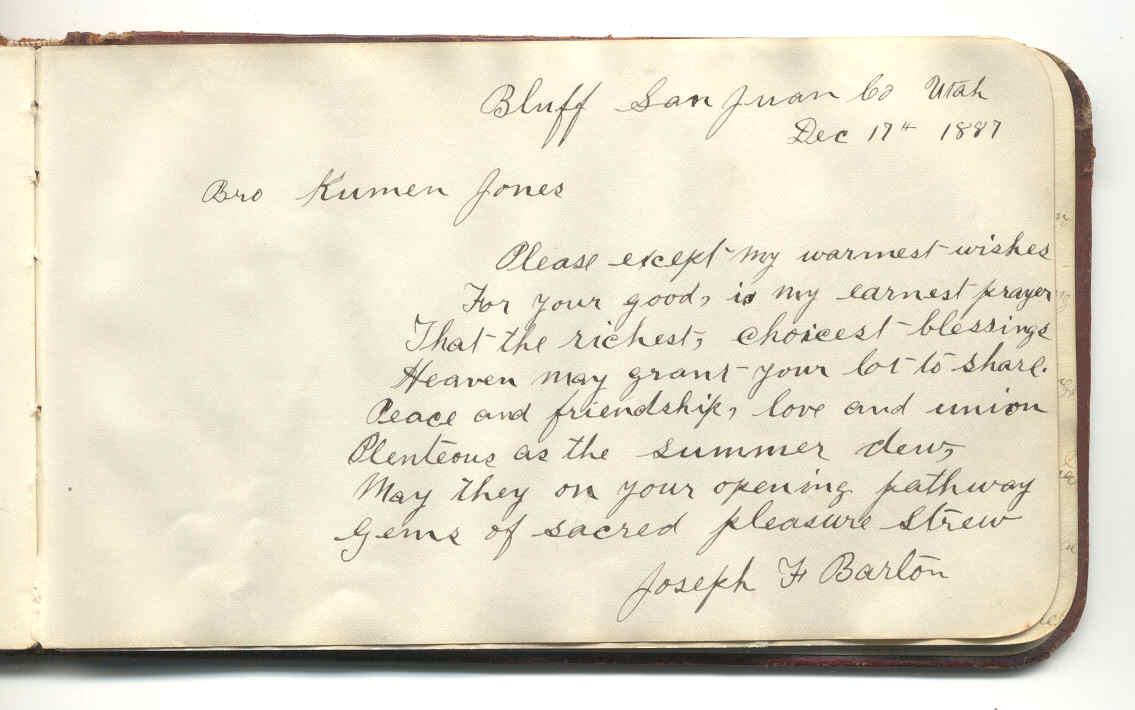 Bluff San Juan Co Utah
Dec 17th 1887
Bro Kumen Jones
Please except my warmest wishes
For your good, is my earnest prayer
That the richest, choicest blessings
Heaven may grant your lot to share.
Peace and friendship, love and union
Plenteous as the summer dew,
May they on your opening pathway
Gems of sacred pleasure strew
Joseph F Barton